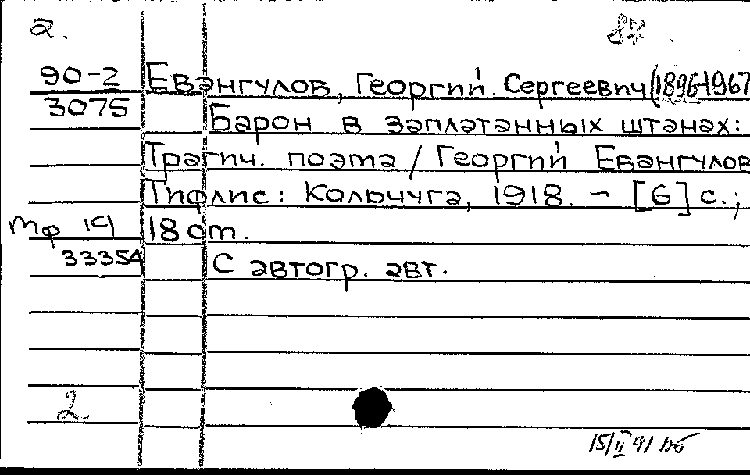 а.
87
90-2
3075
Евангулов, Георгий Сергеевич (1896-1967
Барон в заплатанных штанах:
Трагич. поэта / Георгий Евангулов
Тифлис: Кольчуга, 1918. - [6] с.;
18 cm.
С автогр. авт.
Мф 19
33354
2
15/II 91